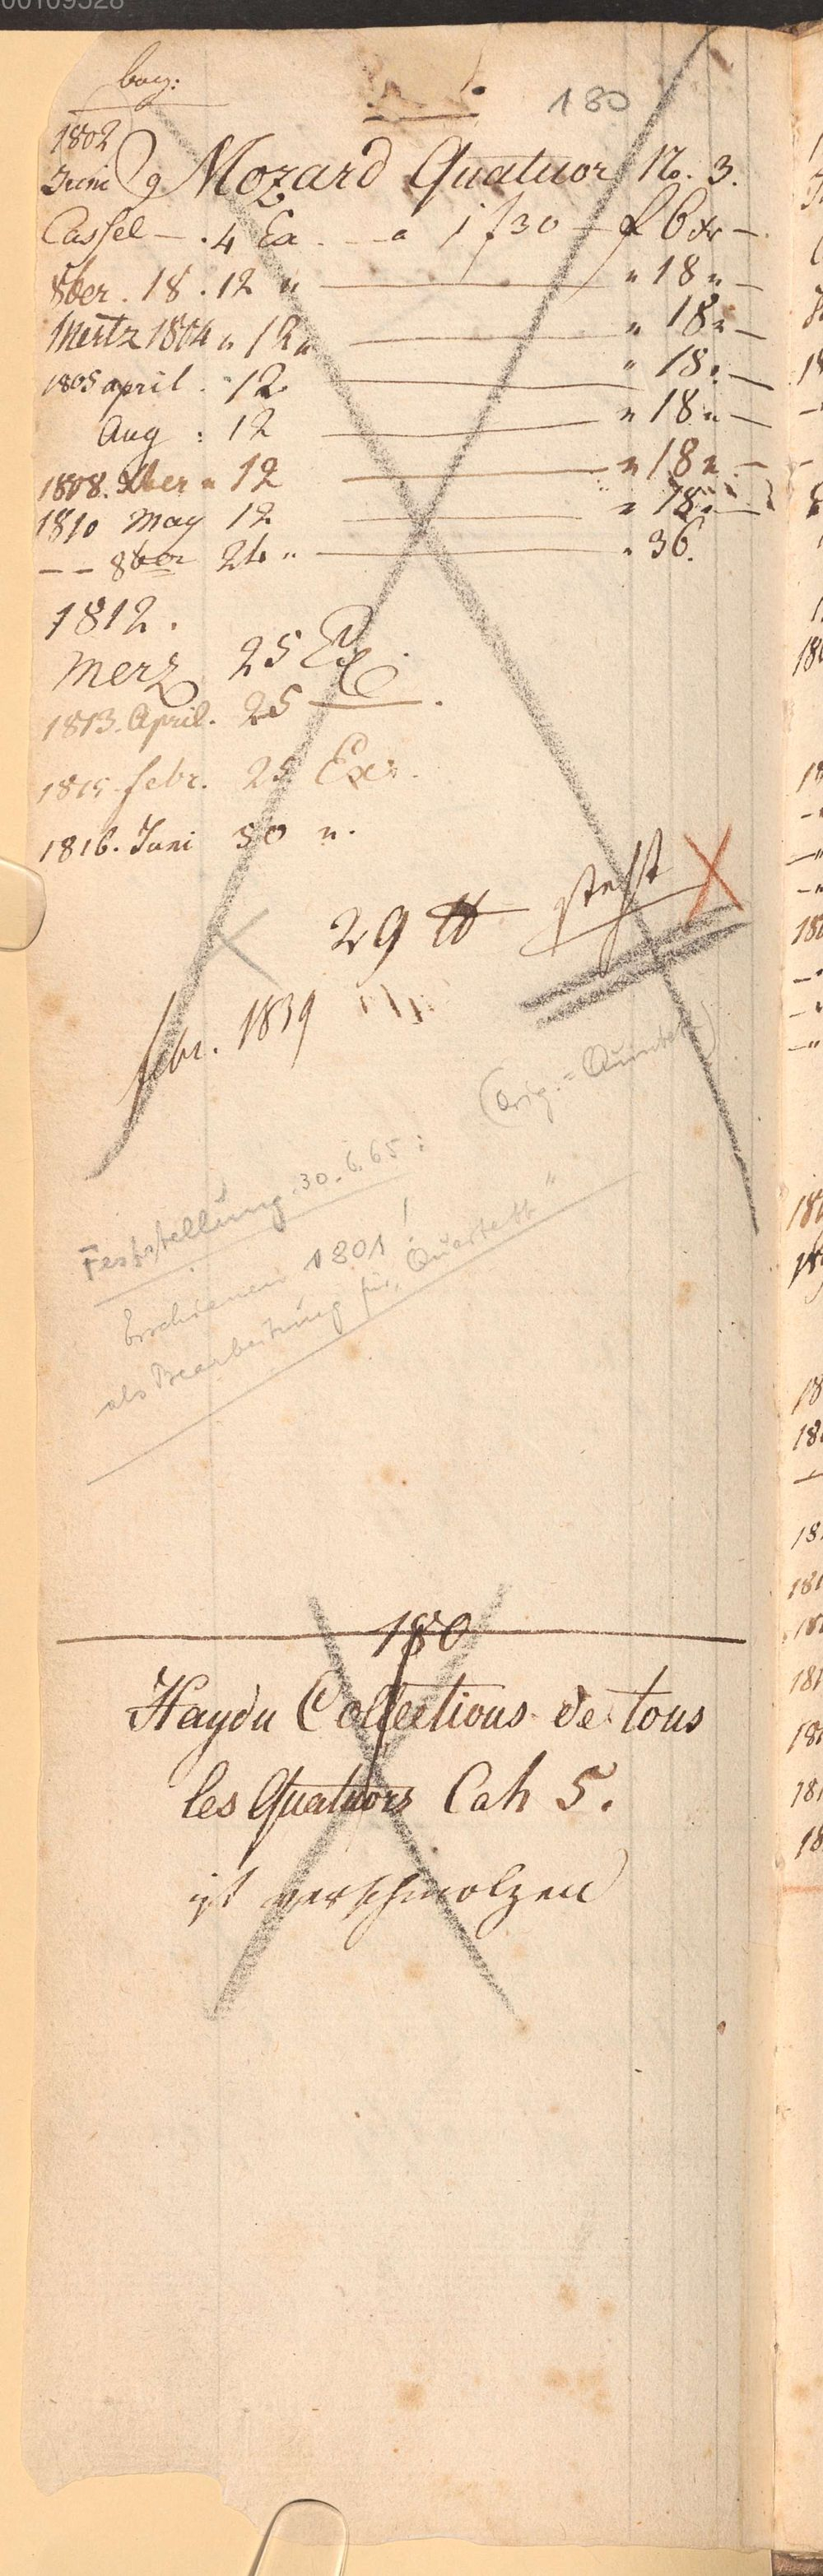 00109528
180
1802
Juni 9 Mozard Quatuor No. 3.
Cassel — . 4 Ex. — a 1f30 — f 6 xr —
8ber . 18 . 12 " — " 18 " —
Mertz 1804 " 12 " — " 18 " —
1805 april . 12 — " 18 " —
Aug : 12 — " 18 " —
1808. Xber " 12 — " 18 " —
1810 May 12 — " 18 " —
— — 8ber 24 " — " 36.
1812.
Merz 25 Ex.
1813. April. 25 — .
1815. febr. 25 Exr.
1816. Juni 50 ".
29 ℔ steht
febr. 1839
(orig. = Quintett)
Feststellung 30.6.65 :
Erschienen 1801!
als Bearbeitung für „Quartett"
180
Haydn Collections de tous
les Quatuors Cah 5.
ist verschmolzen